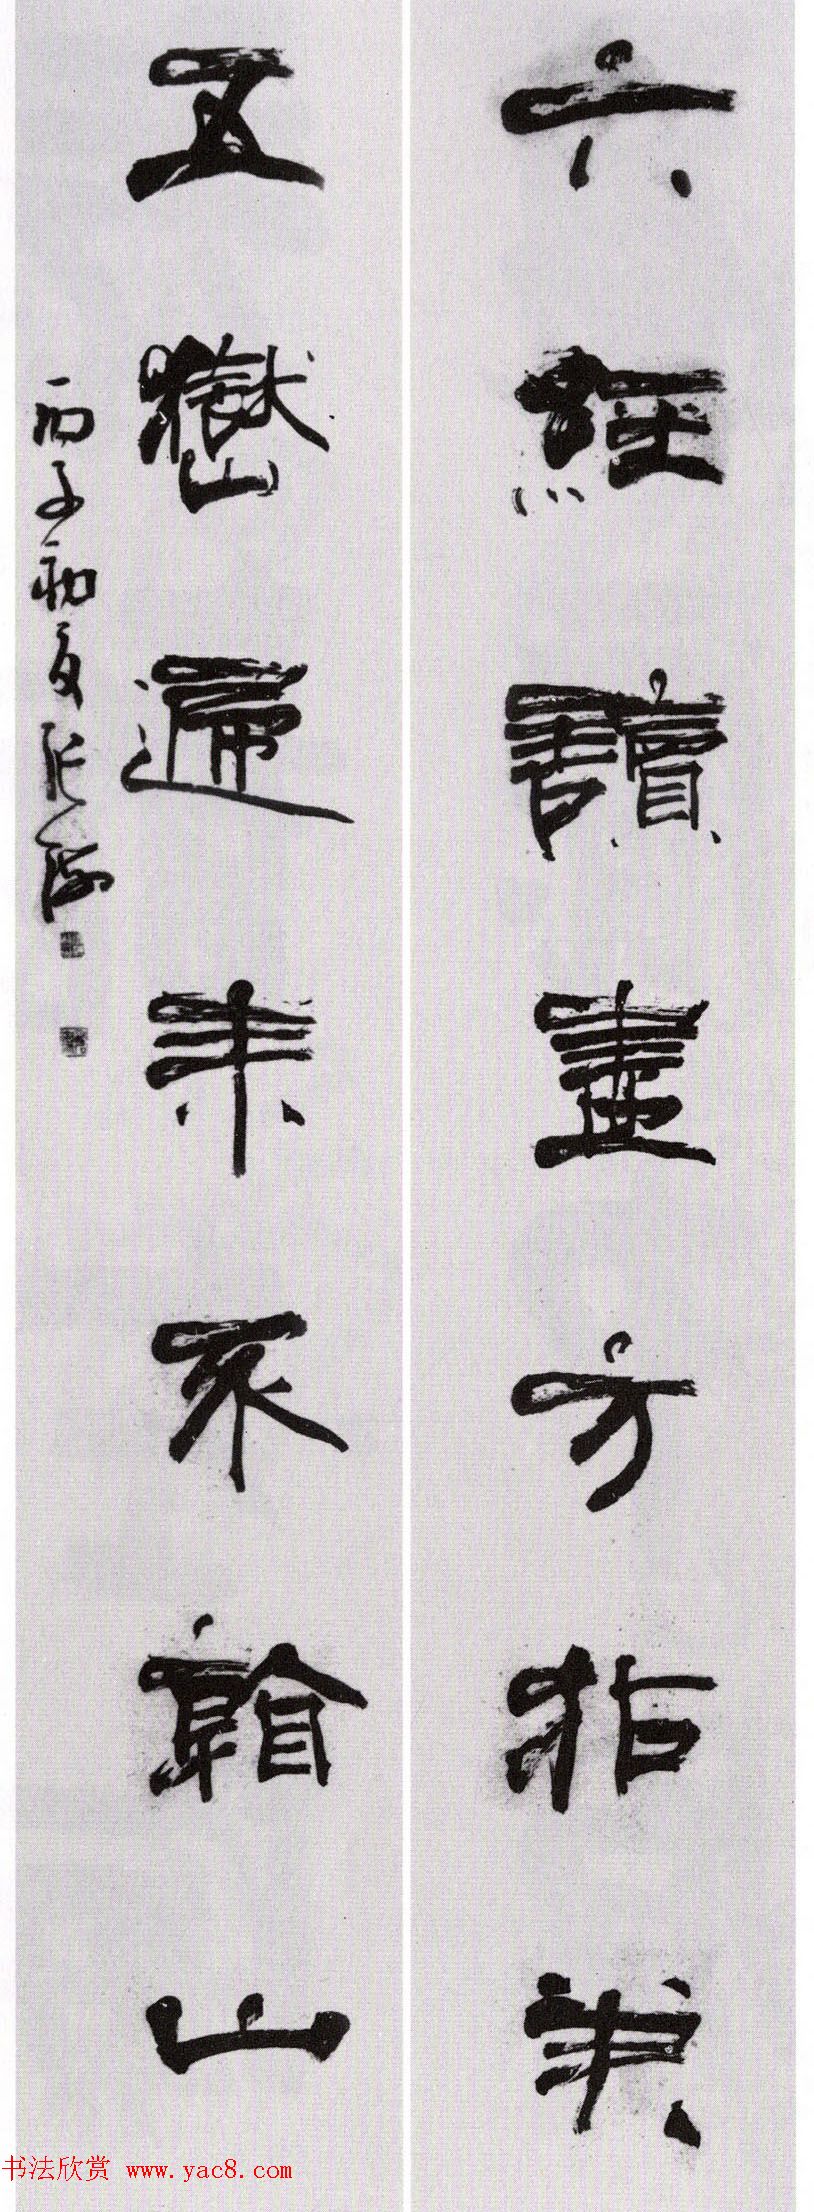 六經讀盡方拈筆
五嶽歸來不看山
丙子初夏張海
书法欣赏 www.yac8.com